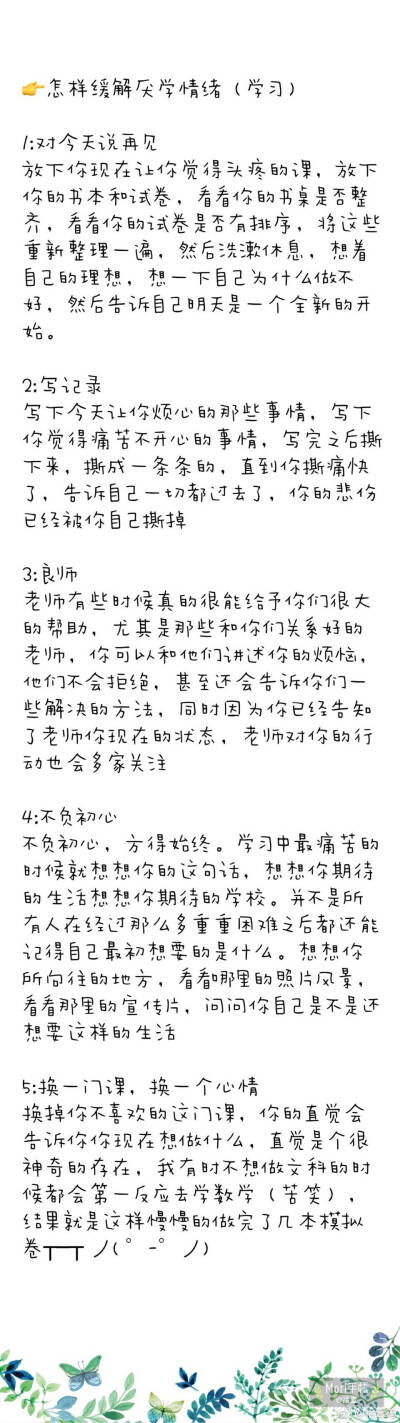 👉怎样缓解厌学情绪（学习）
1:对今天说再见
放下你现在让你觉得头疼的课，放下
你的书本和试卷，看看你的书桌是否整
齐，看看你的试卷是否有排序，将这些
重新整理一遍，然后洗漱休息，想着
自己的理想，想一下自己为什么做不
好，然后告诉自己明天是一个全新的开
始。
2:写记录
写下今天让你烦心的那些事情，写下
你觉得痛苦不开心的事情，写完之后撕
下来，撕成一条条的，直到你撕痛快
了，告诉自己一切都过去了，你的悲伤
已经被你自己撕掉
3:良师
老师有些时候真的很能给予你们很大
的帮助，尤其是那些和你们关系好的
老师，你可以和他们讲述你的烦恼，
他们不会拒绝，甚至还会告诉你们一
些解决的方法，同时因为你已经告知
了老师你现在的状态，老师对你的行
动也会多家关注
4:不负初心
不负初心，方得始终。学习中最痛苦的
时候就想想你的这句话，想想你期待
的生活想想你期待的学校。并不是所
有人在经过那么多重重困难之后都还能
记得自己最初想要的是什么。想想你
所向往的地方，看看哪里的照片风景，
看看那里的宣传片，问问你自己是不是还
想要这样的生活
5:换一门课，换一个心情
换掉你不喜欢的这门课，你的直觉会
告诉你你现在想做什么，直觉是个很
神奇的存在，我有时不想做文科的时
候都会第一反应去学数学（苦笑），
结果就是这样慢慢的做完了几本模拟
卷┬─┬ ノ( ゜-゜ノ)
Mori手帐